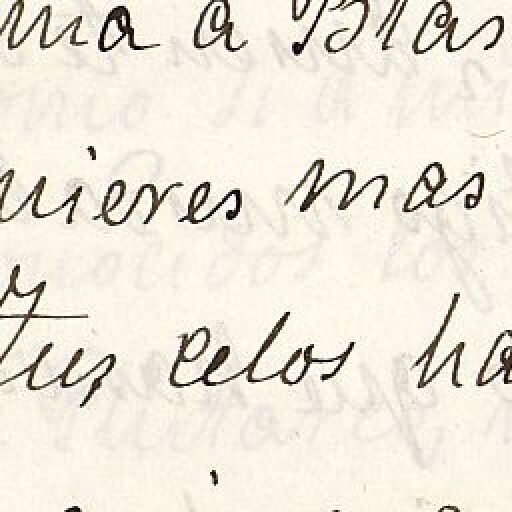 ma a Blas
uieres mas
Tus celos ha